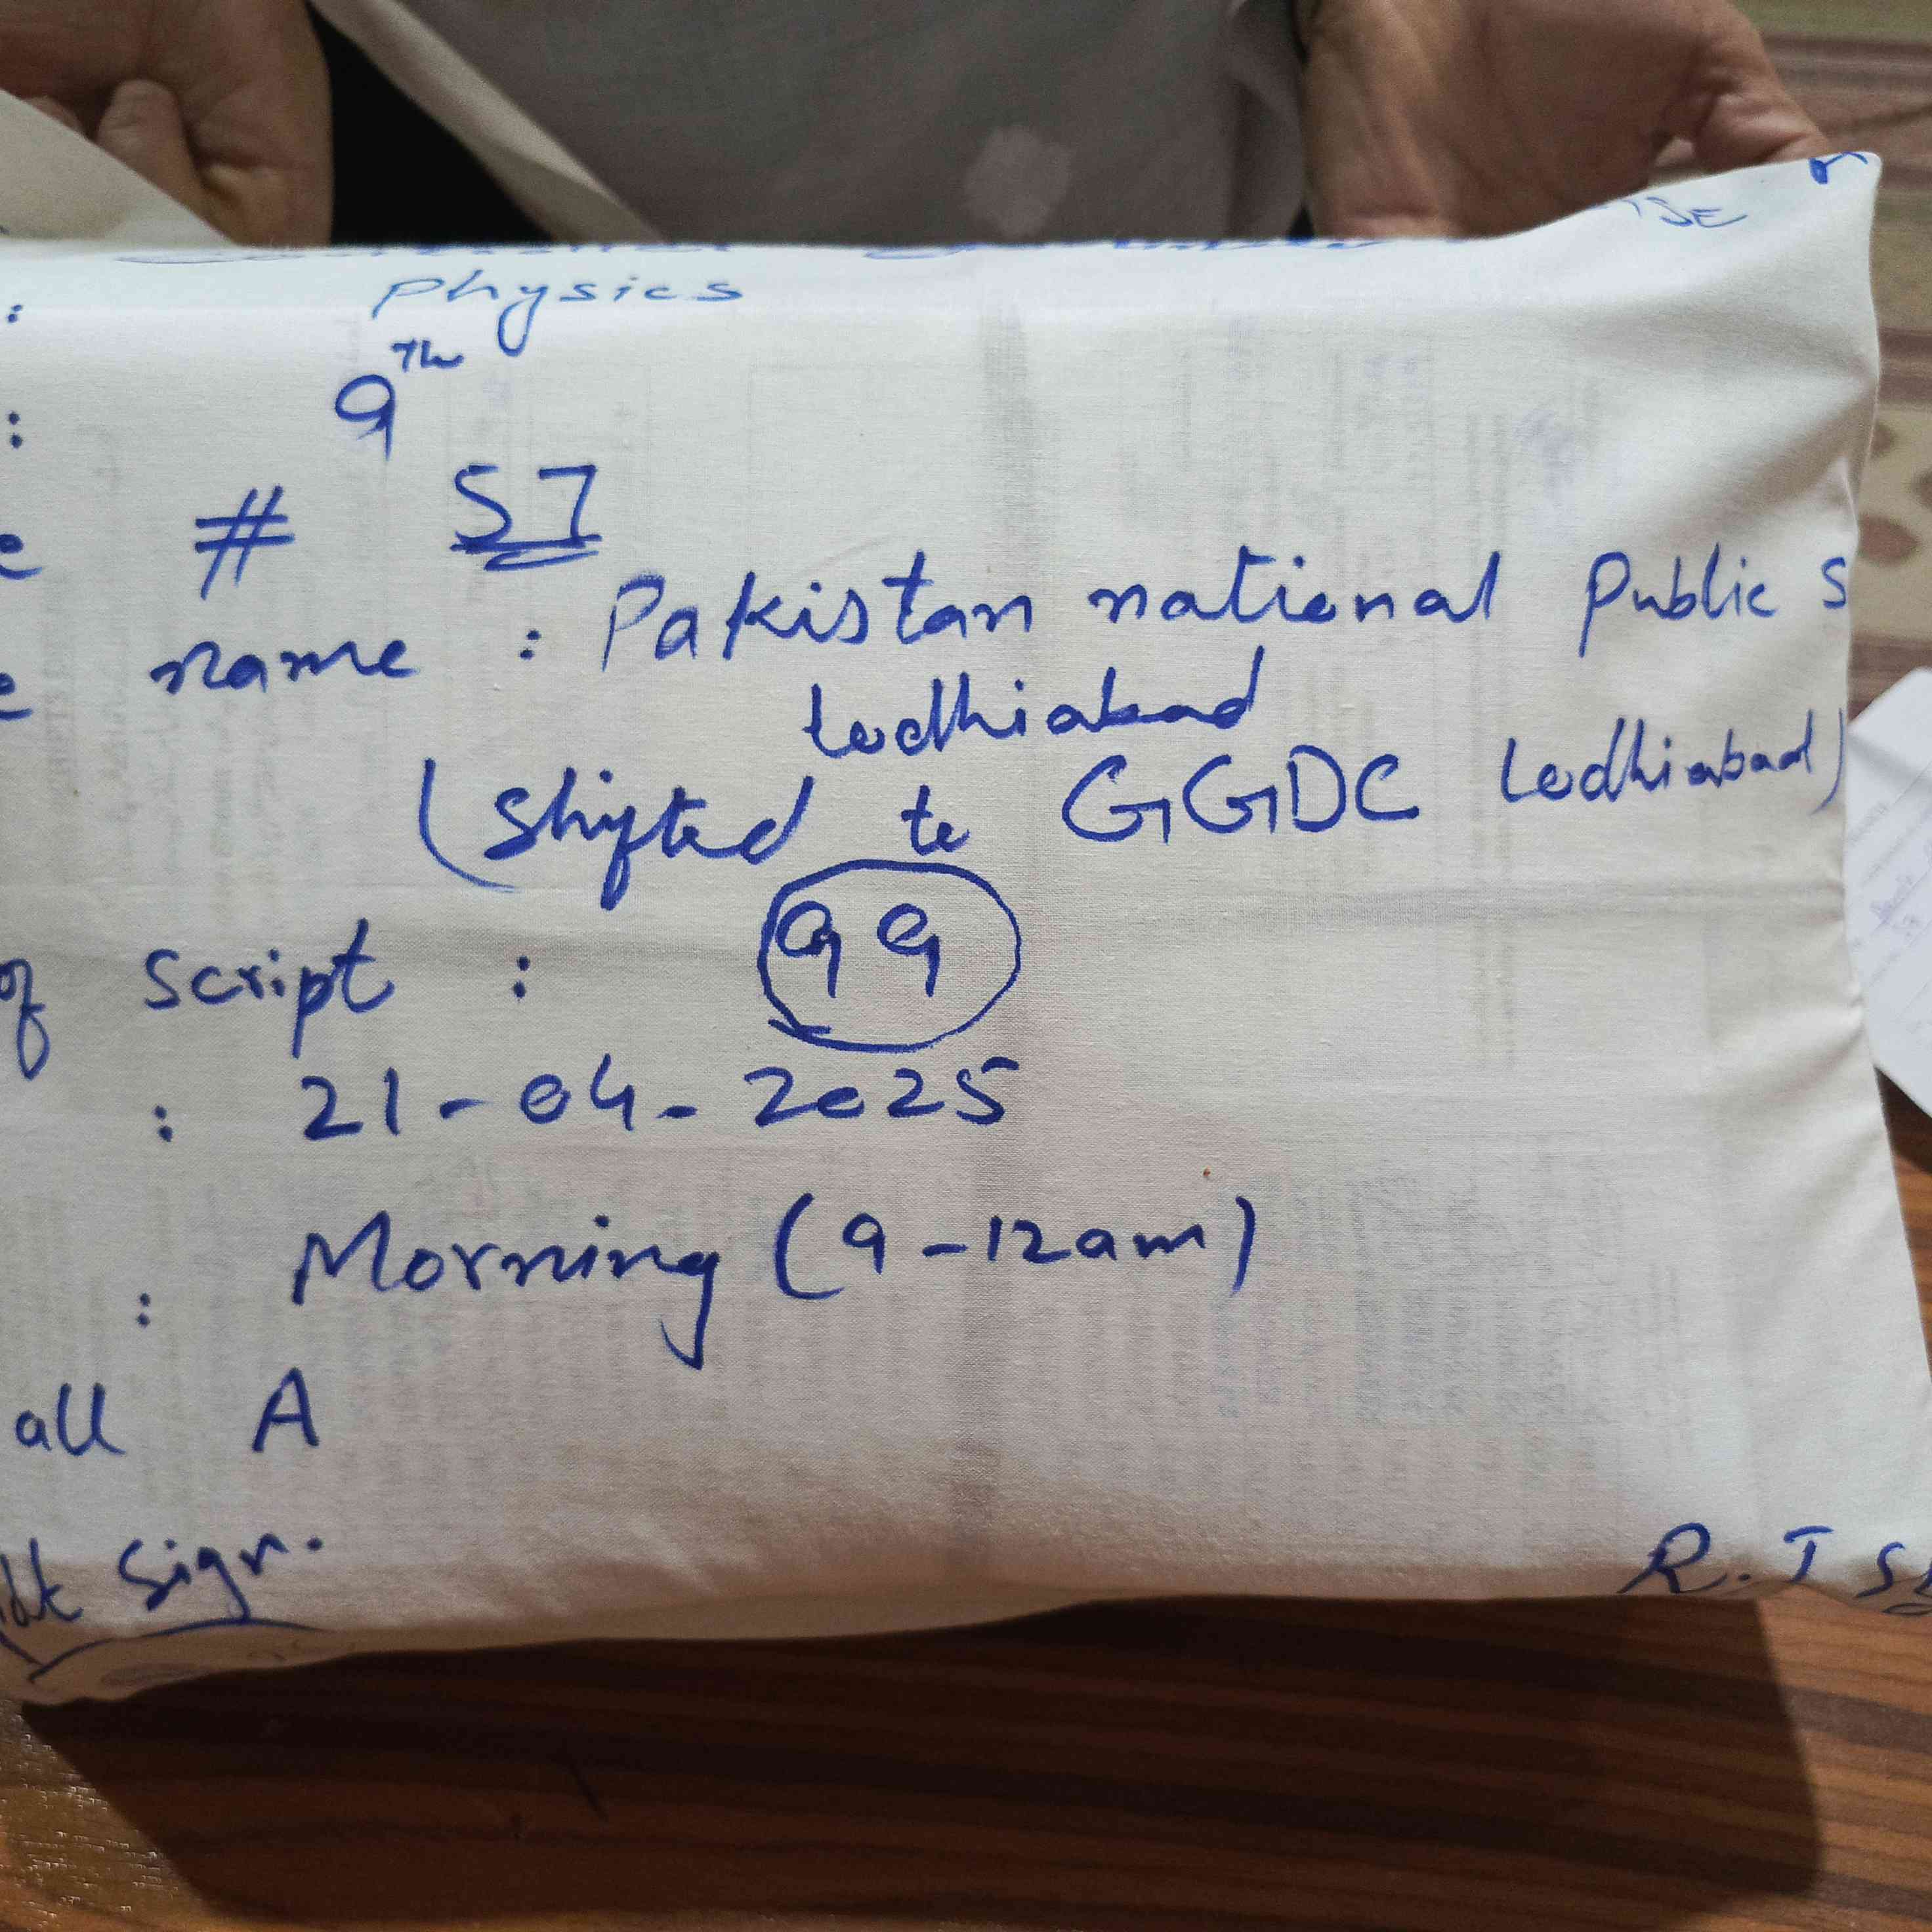 : Physics
: 9Th
e # 57
e name : Pakistan national Public S
Lodhiabad
(Shifted to GGDC Lodhiabad)
of Script : 99
: 21-04-2025
: Morning (9-12am)
all A
Sign.
R.I